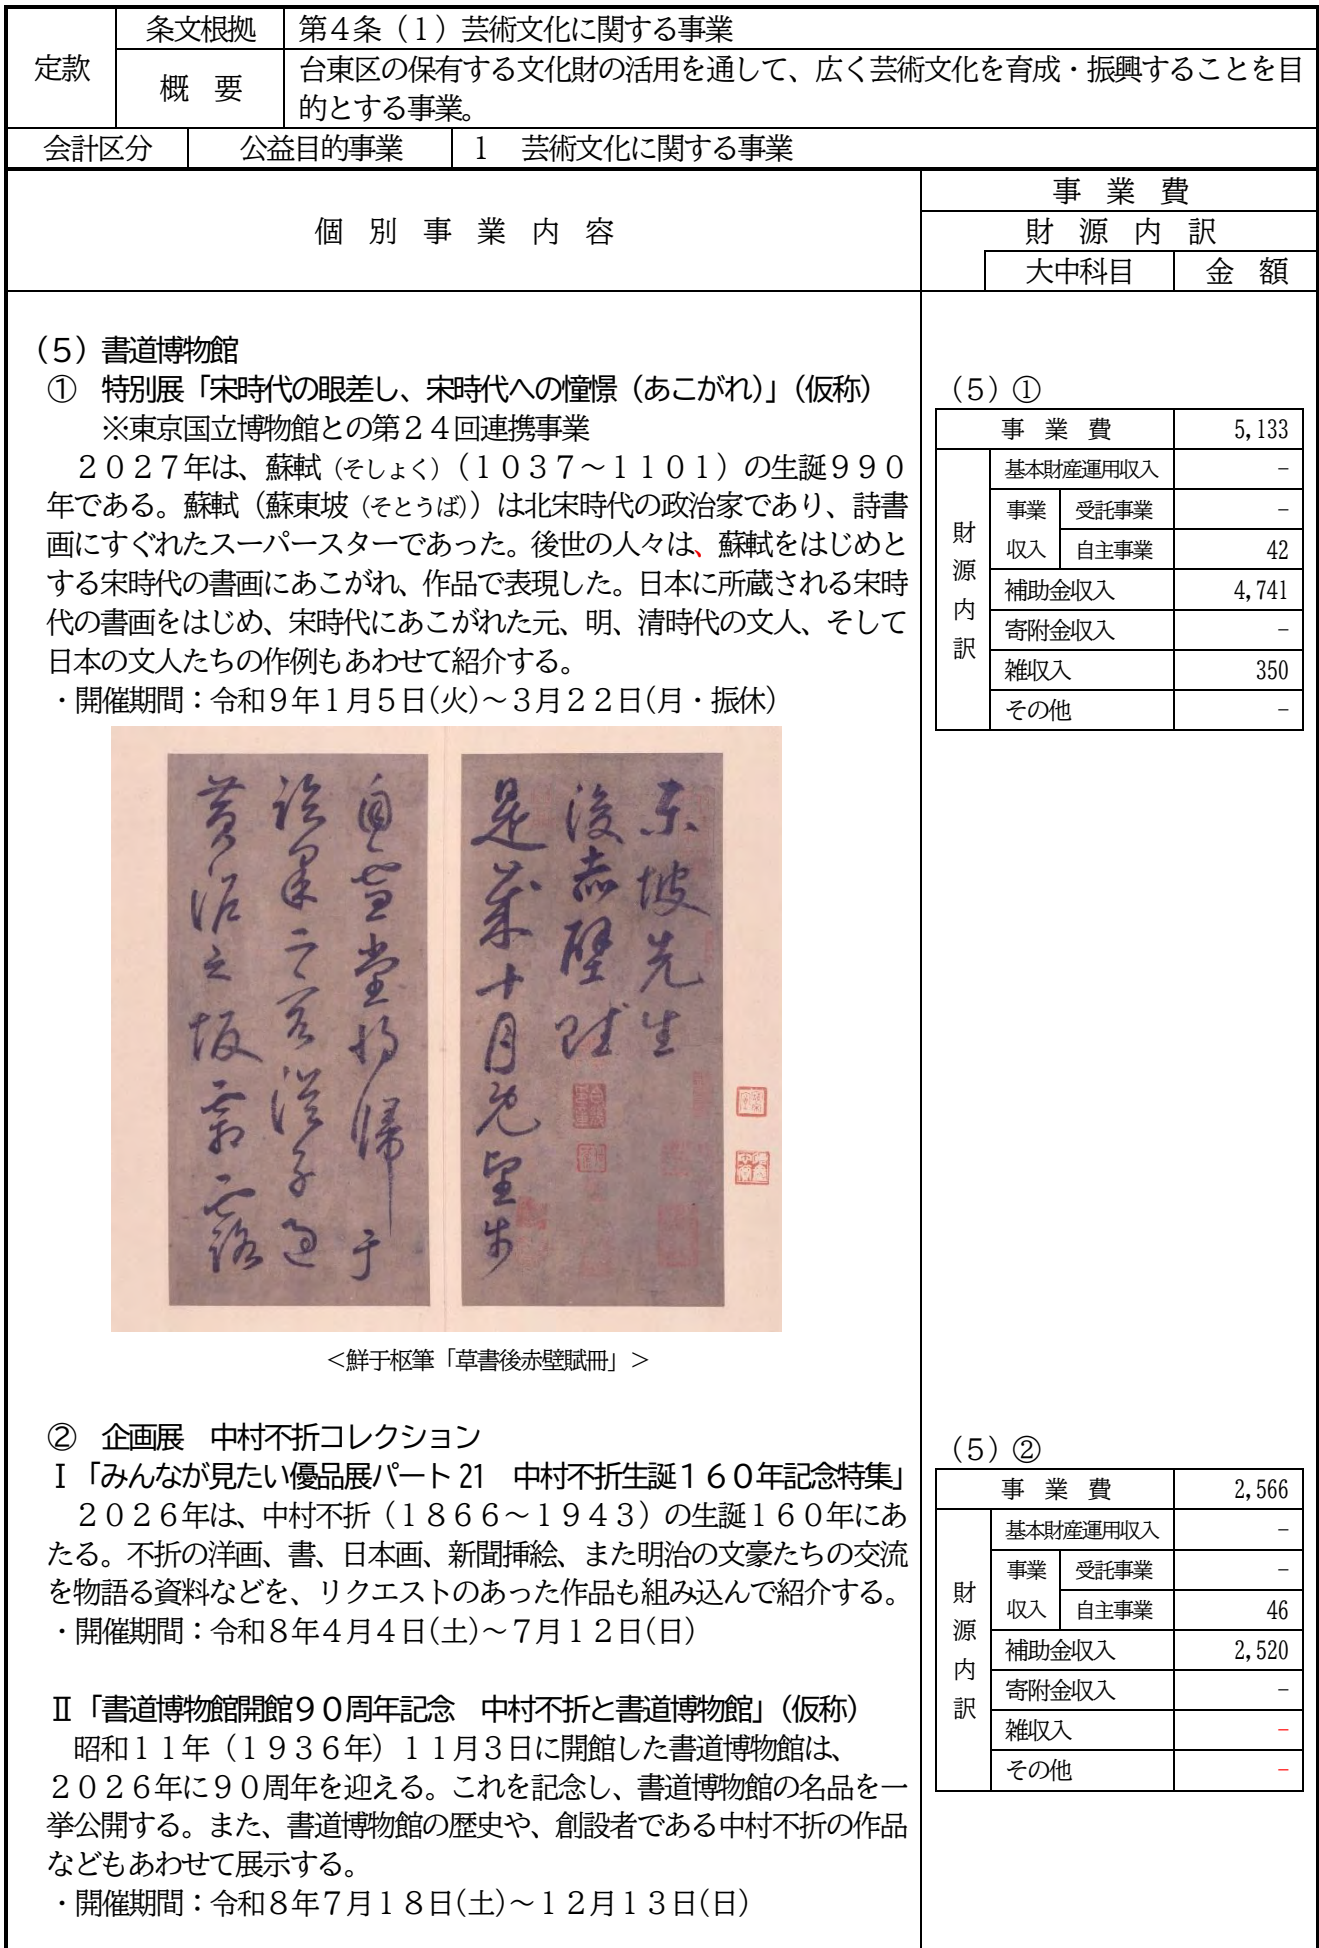 定款
条文根拠
第４条（１）芸術文化に関する事業
概　要
台東区の保有する文化財の活用を通して、広く芸術文化を育成・振興することを目
的とする事業。
会計区分
公益目的事業
１　芸術文化に関する事業
個　別　事　業　内　容
事　業　費
財　源　内　訳
大中科目
金　額
（５）書道博物館
①　特別展「宋時代の眼差し、宋時代への憧憬（あこがれ）」（仮称）
※東京国立博物館との第２４回連携事業
２０２７年は、蘇軾（そしょく）（１０３７～１１０１）の生誕９９０
年である。蘇軾（蘇東坡（そとうば））は北宋時代の政治家であり、詩書
画にすぐれたスーパースターであった。後世の人々は、蘇軾をはじめと
する宋時代の書画にあこがれ、作品で表現した。日本に所蔵される宋時
代の書画をはじめ、宋時代にあこがれた元、明、清時代の文人、そして
日本の文人たちの作例もあわせて紹介する。
・開催期間：令和９年１月５日(火)～３月２２日(月・振休)
東坡先生
後赤壁賦
是歳十月既望步
自雪堂將歸于
臨皐二客從予過
黃泥之坂霜露
＜鮮于枢筆「草書後赤壁賦冊」＞
②　企画展　中村不折コレクション
Ⅰ「みんなが見たい優品展パート 21　中村不折生誕１６０年記念特集」
２０２６年は、中村不折（１８６６～１９４３）の生誕１６０年にあ
たる。不折の洋画、書、日本画、新聞挿絵、また明治の文豪たちの交流
を物語る資料などを、リクエストのあった作品も組み込んで紹介する。
・開催期間：令和８年４月４日(土)～７月１２日(日)
Ⅱ「書道博物館開館９０周年記念　中村不折と書道博物館」（仮称）
昭和１１年（１９３６年）１１月３日に開館した書道博物館は、
２０２６年に９０周年を迎える。これを記念し、書道博物館の名品を一
挙公開する。また、書道博物館の歴史や、創設者である中村不折の作品
などもあわせて展示する。
・開催期間：令和８年７月１８日(土)～１２月１３日(日)
（５）①
事　業　費　5,133
財源内訳
基本財産運用収入　－
事業収入　受託事業　－
自主事業　42
補助金収入　4,741
寄附金収入　－
雑収入　350
その他　－
（５）②
事　業　費　2,566
財源内訳
基本財産運用収入　－
事業収入　受託事業　－
自主事業　46
補助金収入　2,520
寄附金収入　－
雑収入　－
その他　－